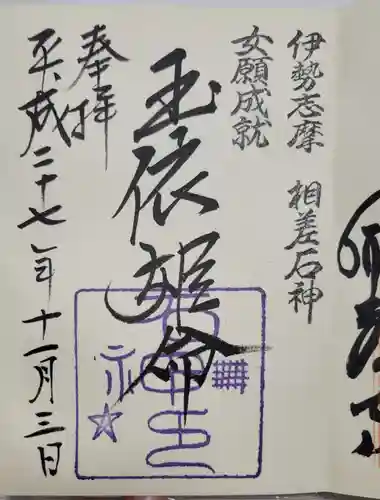 伊勢志摩 相差石神
女願成就
玉依姫命
奉拝
平成二十七年十一月三日
石神